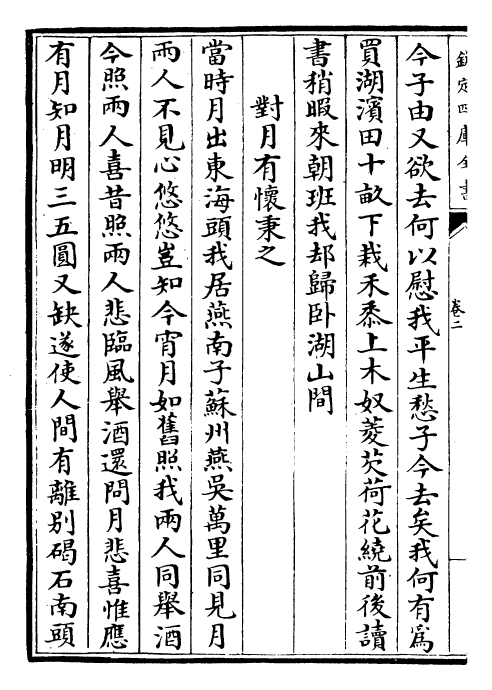 欽定四庫全書
卷二
今子由又欲去何以慰我平生愁子今去矣我何有為
買湖濱田十畝下栽禾黍上木奴菱芡荷花繞前後讀
書稍暇來朝班我却歸卧湖山間
對月有懷秉之
當時月出東海頭我居燕南子蘇州燕吳萬里同見月
兩人不見心悠悠豈知今宵月如舊照我兩人同舉酒
今照兩人喜昔照兩人悲臨風舉酒還問月悲喜惟應
有月知月明三五圓又缺遂使人間有離别碣石南頭